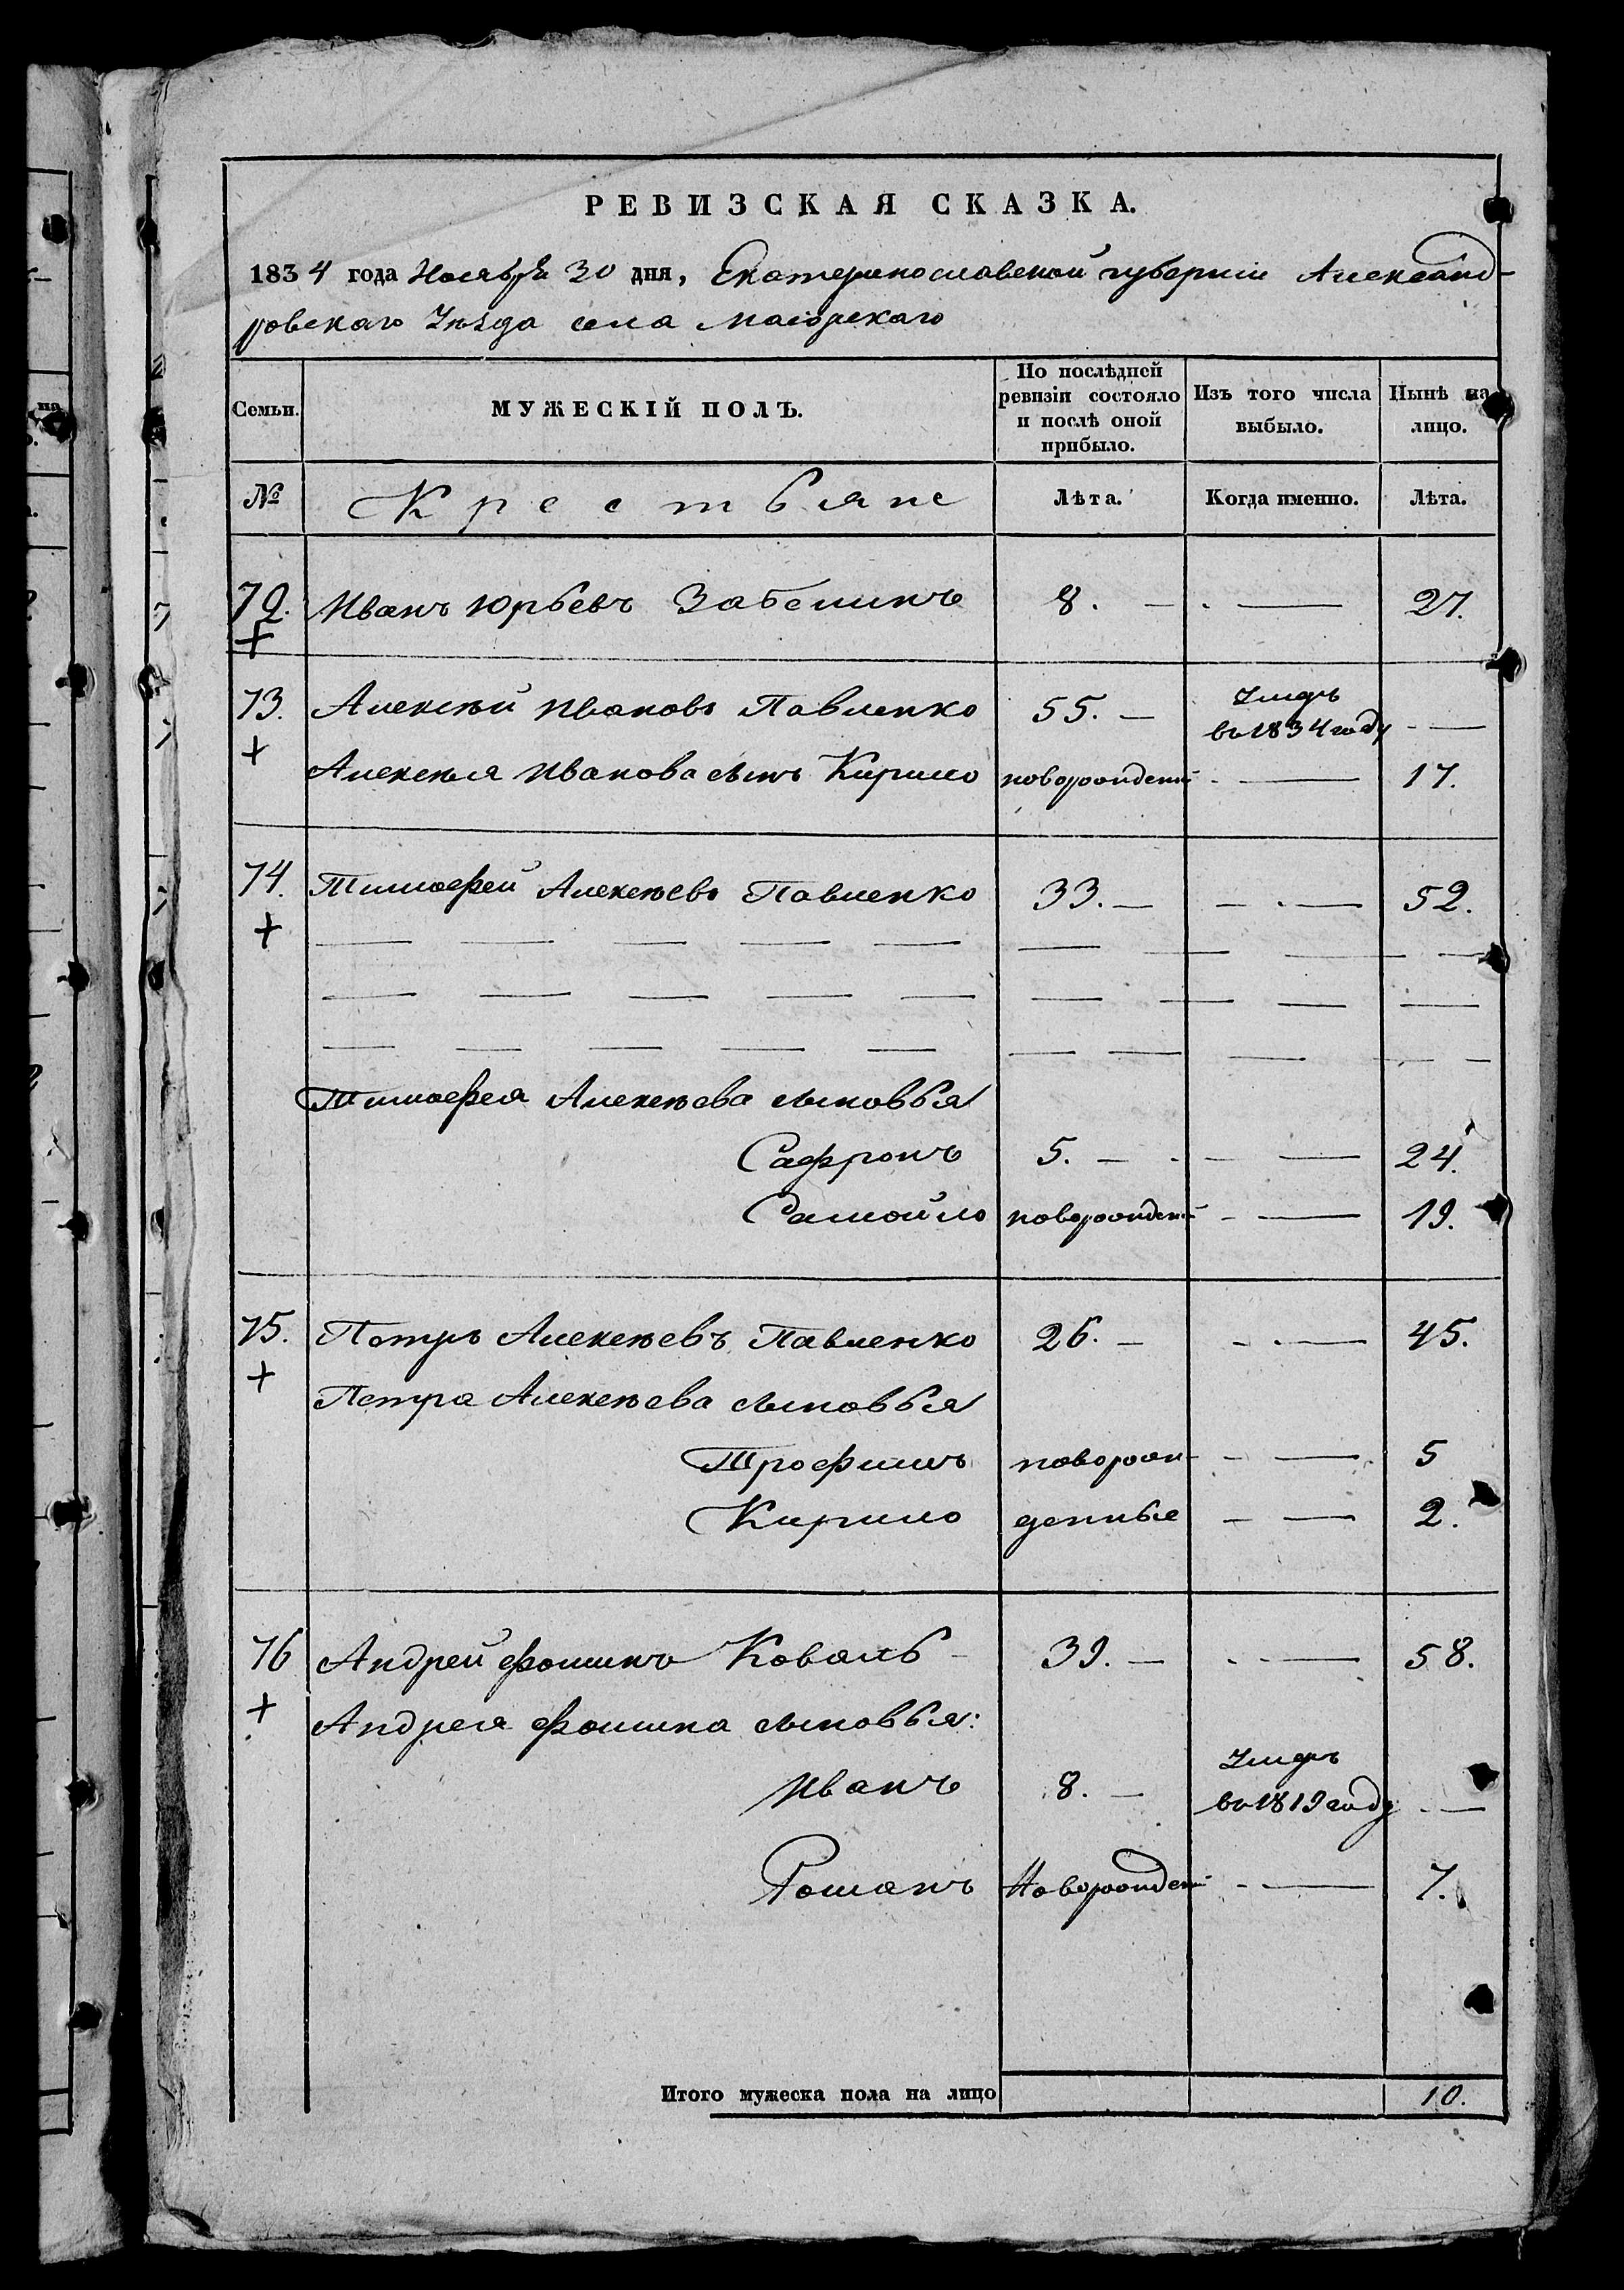 РЕВИЗСКАЯ СКАЗКА.
1834 года Ноября 30 дня, Екатеринославской губерніи Александ-
ровскаго Уѣзда села Маіорскаго
Семьи. МУЖЕСКІЙ ПОЛЪ. По послѣдней ревизіи состояло и послѣ оной прибыло. Изъ того числа выбыло. Нынѣ на лицо.
№ Крестьяне Лѣта. Когда именно. Лѣта.
72. Иванъ Юрьевъ Забелинъ 8. — — 27.
+
73. Алексѣй Ивановъ Павленко 55. — Умеръ въ 1834 году —
+
Алексѣя Иванова сынъ Кирило новорожденый — 17.
74. Тимофей Алексѣевъ Павленко 33. — — 52.
+
Тимофея Алексѣева сыновья
Сафронъ 5. — — 24.
Самойло новорожденый — 19.
75. Петръ Алексѣевъ Павленко 26. — — 45.
+
Петра Алексѣева сыновья
Трофимъ новорож- — 5
Кирило денные — 2.
76 Андрей Фоминъ Коваль 39. — — 58.
+
Андрея Фомина сыновья:
Иванъ 8. — Умеръ въ 1819 году —
Романъ Новорожденый — 7.
Итого мужеска пола на лицо 10.